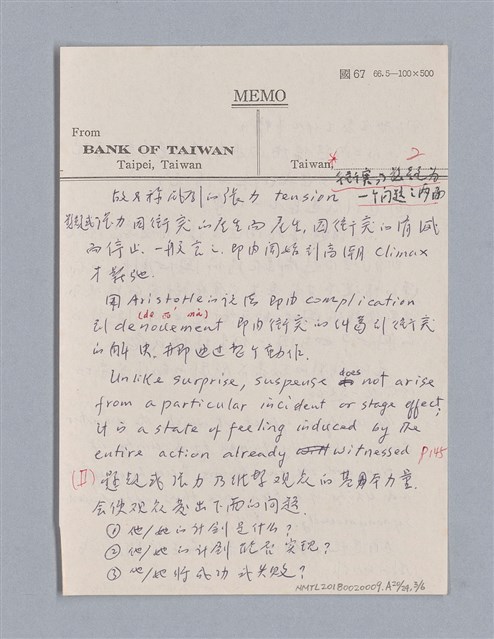 國 67 66.5—100×500
MEMO
From
BANK OF TAIWAN
Taipei, Taiwan
Taiwan,
2
衝突与懸疑為
一个問題之兩面
故又称為張力 tension
懸疑或張力因衝突的產生而產生,因衝突的消滅
而停止. 一般言之,即由開始到高潮 Climax
才鬆弛.
用Aristotle的說法即由complication
到denouement 即由衝突的糾葛到衝突
的解決.亦即通过整个動作.
Unlike surprise, suspense does not arise
from a particular incident or stage effect;
it is a state of feeling induced by the
entire action already witnessed P145
(II) 懸疑或張力乃維繫观众的基本力量.
会使观众発出下面的问題.
① 他/她的計劃是什么?
② 他/她的計劃能否实現?
③ 他/她將成功或失敗?
NMTL20180020009.A